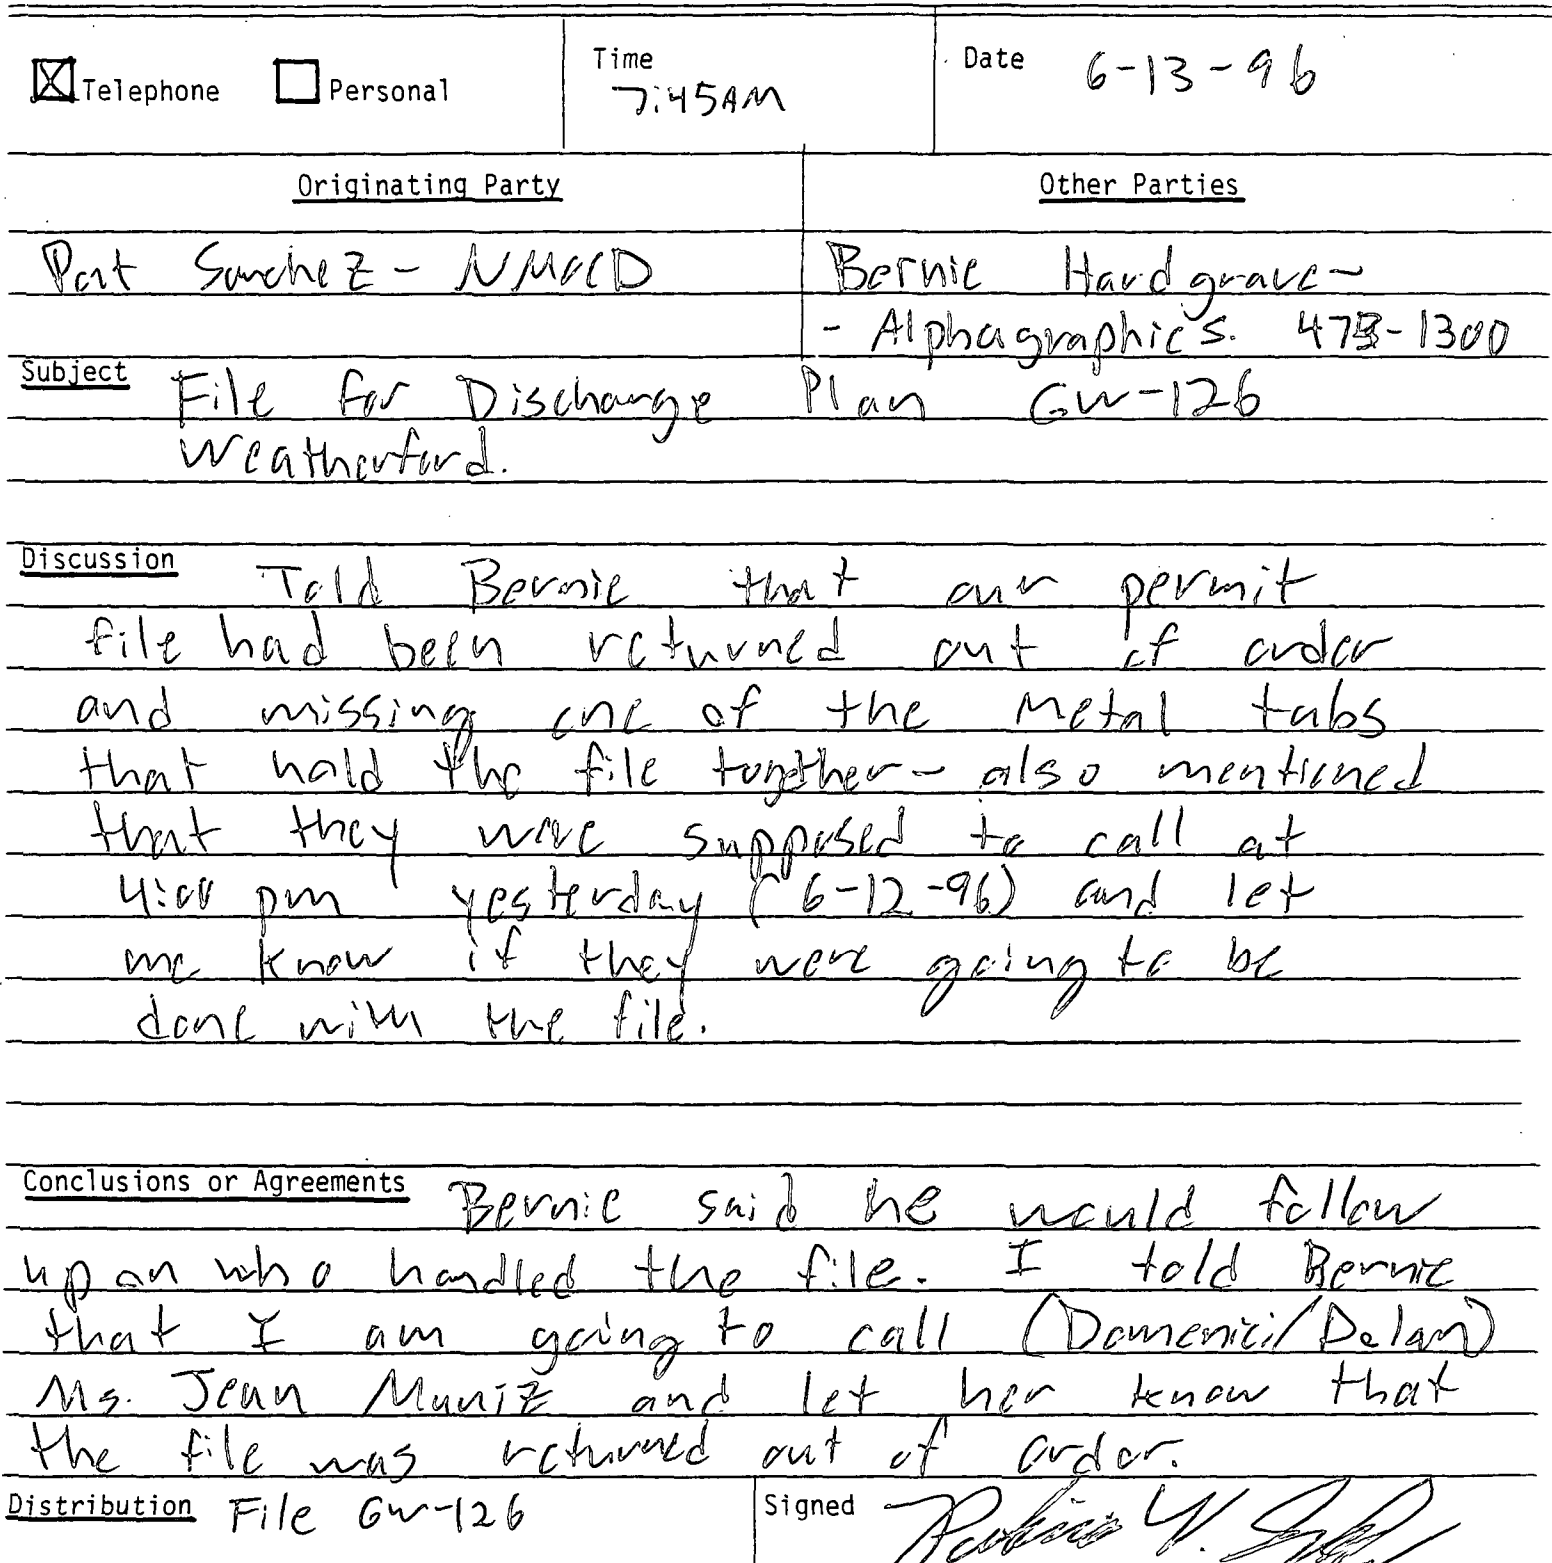 Telephone Personal Time 7:45AM Date 6-13-96
Originating Party Other Parties
Pat Sanchez - NMOCD Bernie Hardgrave-
- Alphagraphics. 473-1300
Subject File for Discharge Plan GW-126
Weatherford.
Discussion Told Bernie that our permit
file had been returned out of order
and missing one of the metal tabs
that hold the file together- also mentioned
that they were supposed to call at
4:00 pm yesterday (6-12-96) and let
me know if they were going to be
done with the file.
Conclusions or Agreements Bernie said he would follow
up on who handled the file. I told Bernie
that I am going to call (Domenici/Dolan)
Ms. Jean Muniz and let her know that
the file was returned out of order.
Distribution File GW-126 Signed